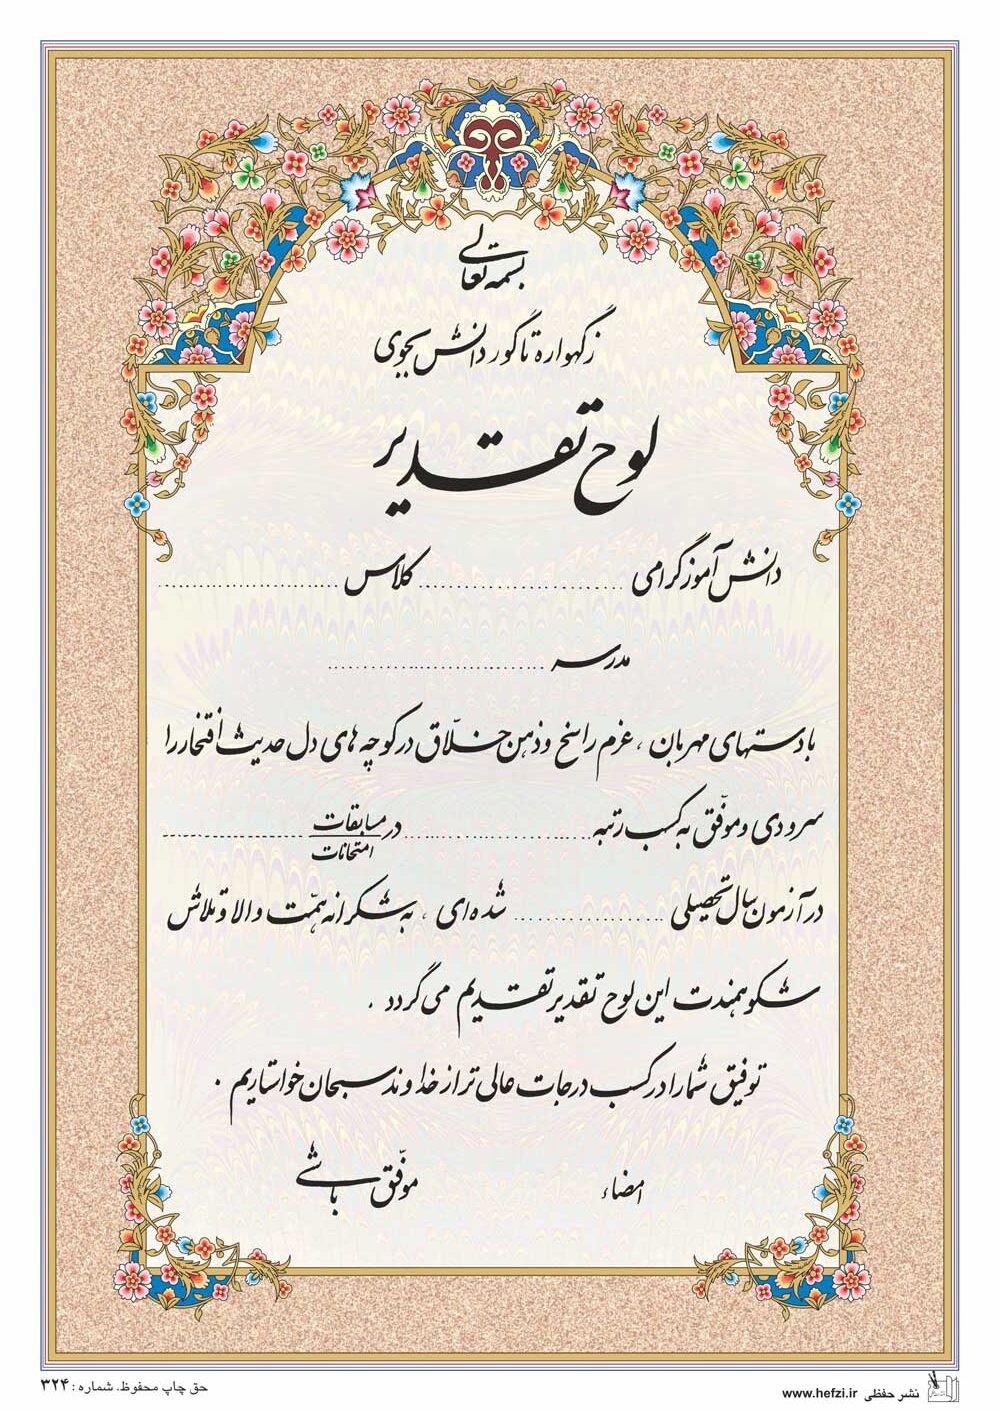 بسمه تعالی
زگهواره تا گور دانش بجوی
لوح تقدیر
دانش آموز گرامی ........................ کلاس ........................
مدرسه ........................
با دستهای مهربان ، عزم راسخ و ذهن خلّاق در کوچه های دل حدیث افتخار را
سرودی و موفّق به کسب رتبه ........................ در مسابقات ........................
امتحانات
در آزمون سال تحصیلی ........................ شده ای ، به شکرانه همّت والا و تلاش
شکوهمندت این لوح تقدیر تقدیم می گردد .
توفیق شما را در کسب درجات عالی تر از خداوند سبحان خواستاریم .
امضاء
موفّق باشی
نشر حفظی www.hefzi.ir
حق چاپ محفوظ. شماره : ۳۲۴